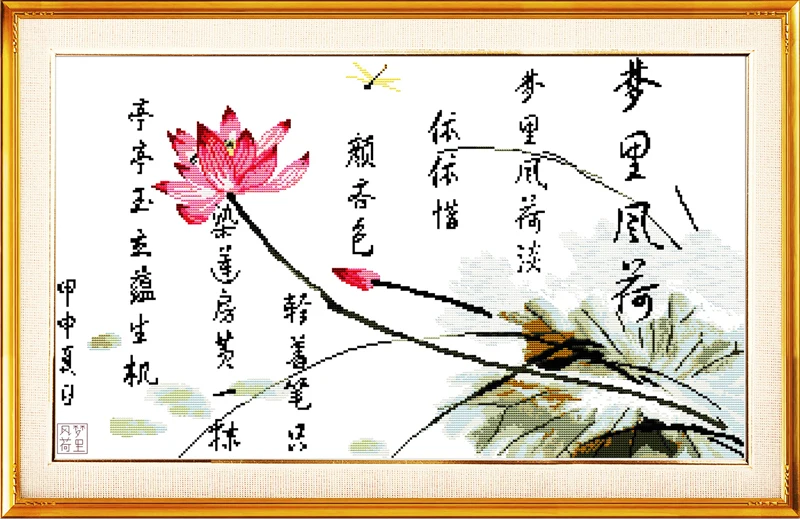 梦里風荷
梦里風荷淡
依依惜
颜容色
轻着笔只
染莲房黄一抹
亭亭玉立蕴生机
甲申夏日
梦里
风荷